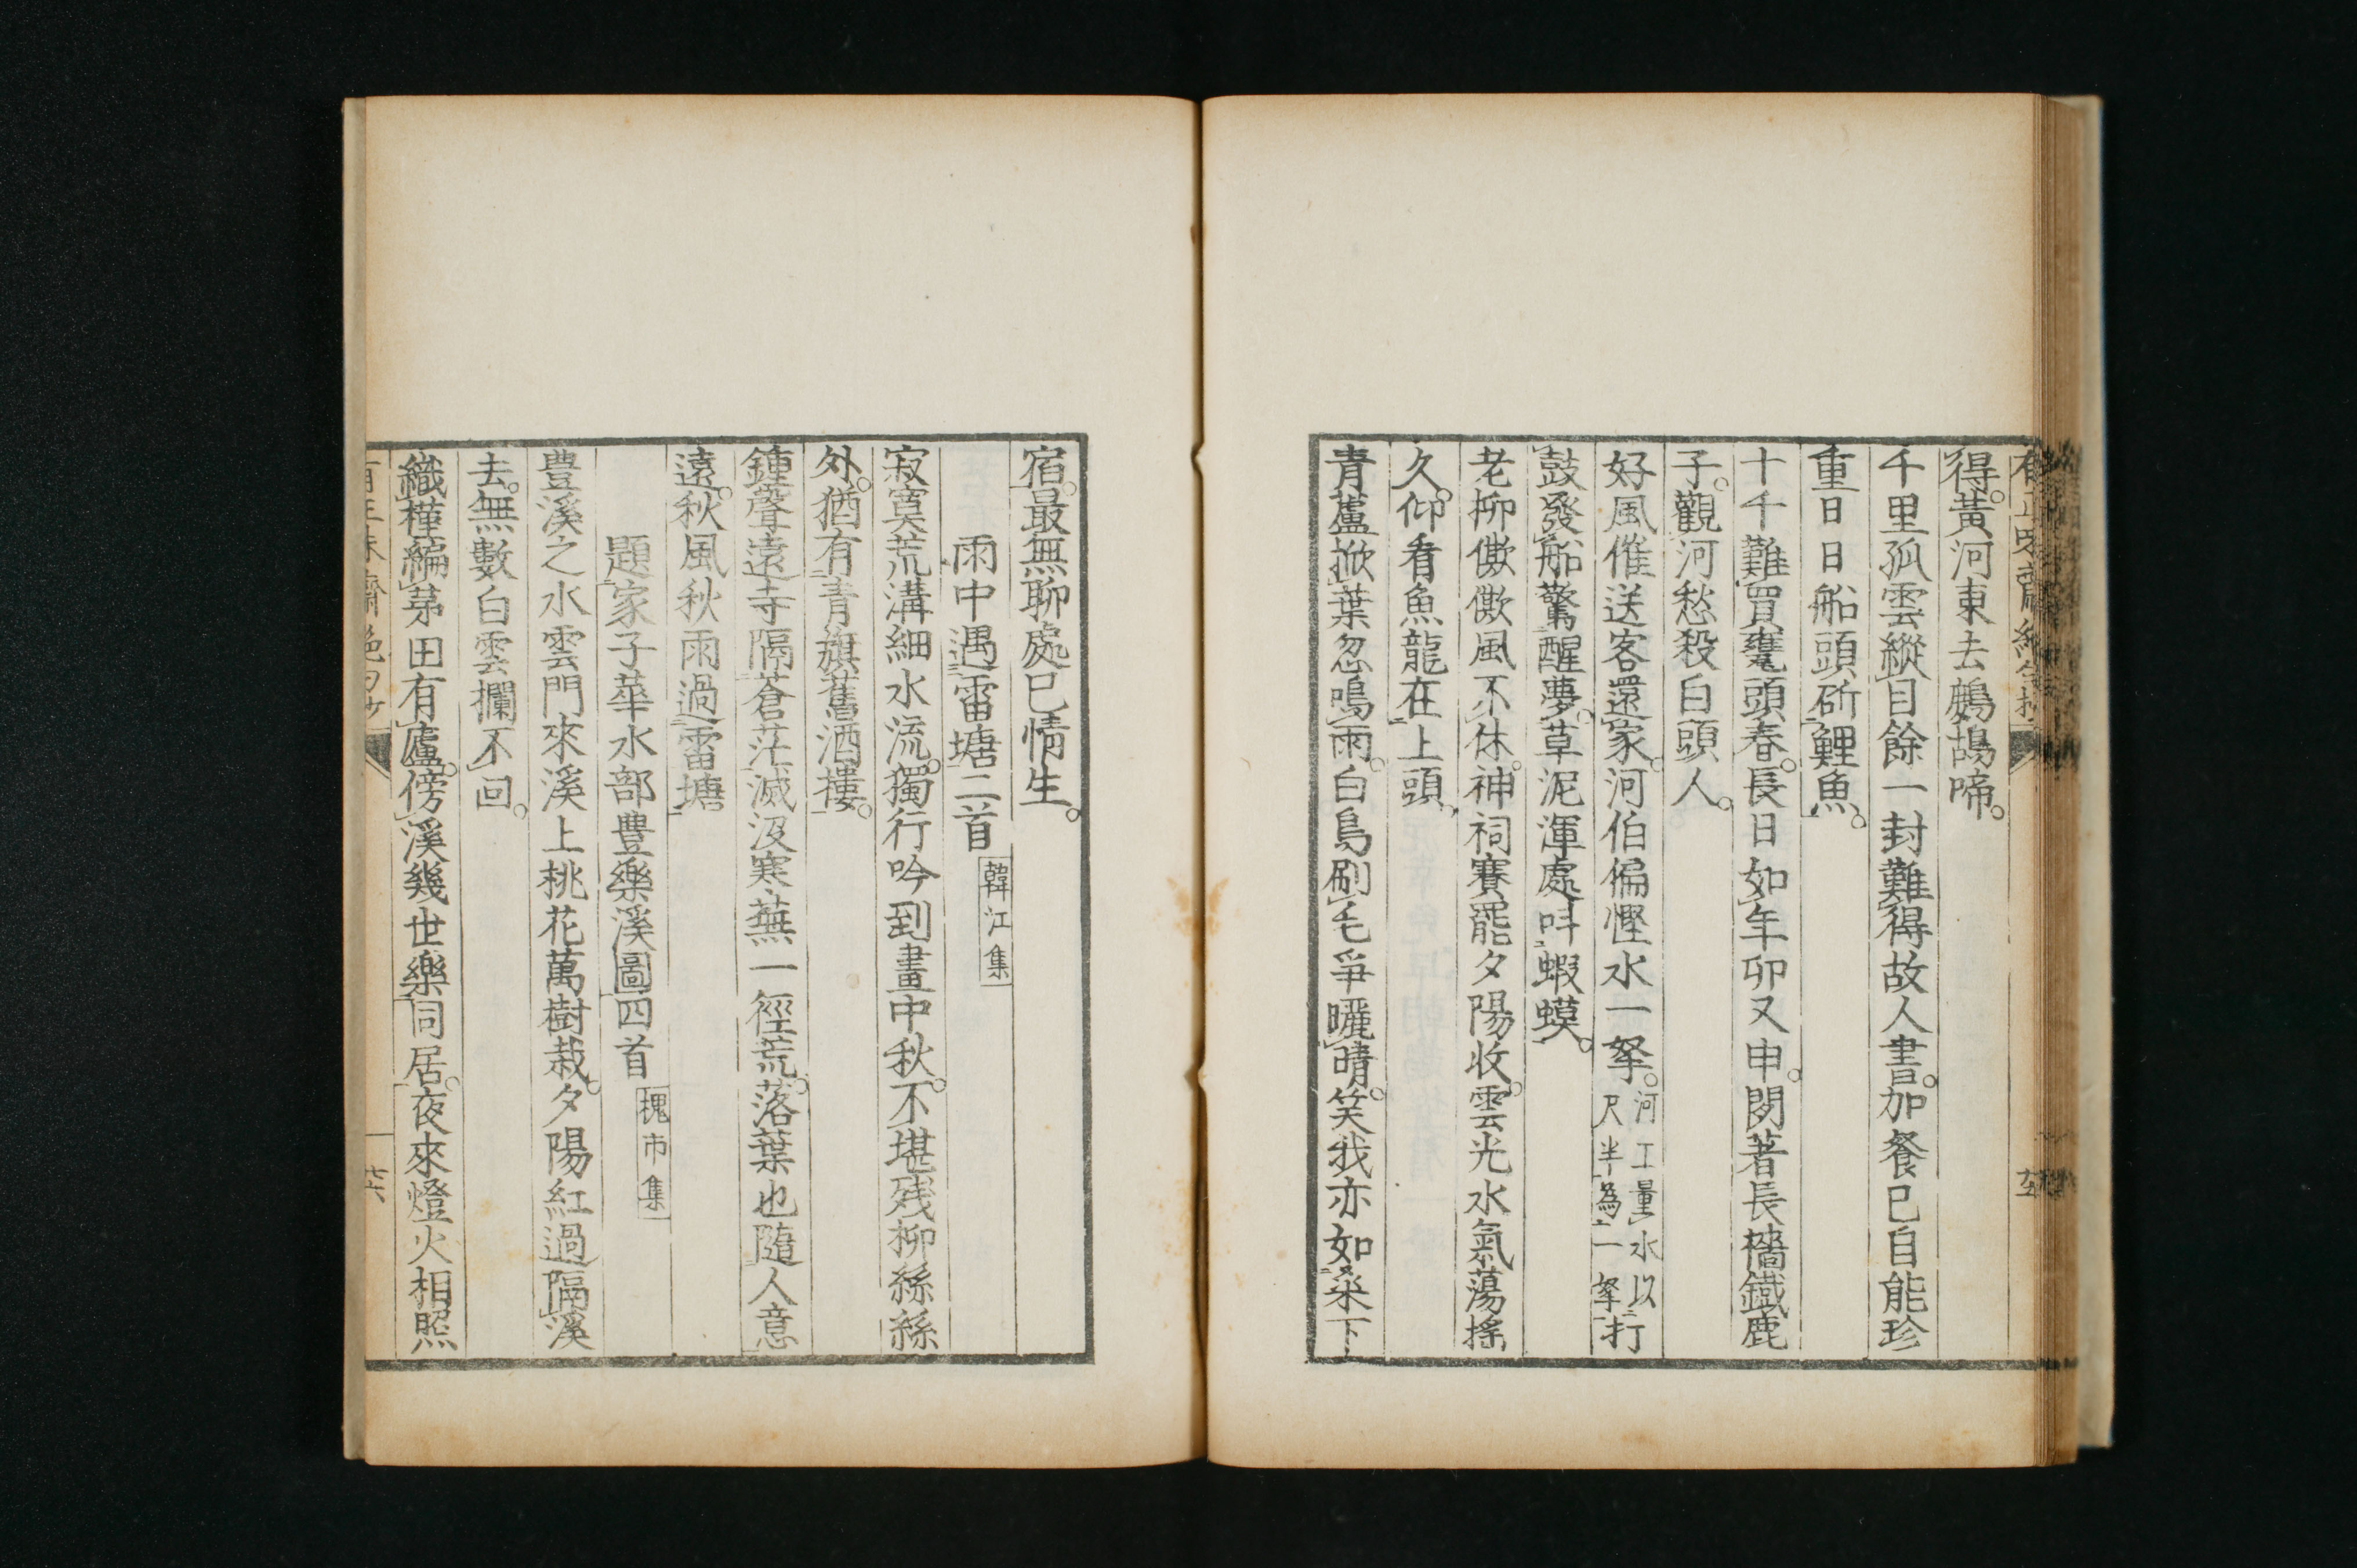 得黃河東去鷓鴣啼
千里孤雲縱目餘一封難得故人書加餐已自能珍
重日日船頭斫鯉魚
十千難買甕頭春長日如年卯又申閱著長檣鐵鹿
子觀河愁殺白頭人
好風催送客還家河伯偏慳水一拏河工量水以打
尺半為一拏
鼓發船驚醒夢草泥渾處叫蝦蟆
老柳僛僛風不休神祠賽罷夕陽收雲光水氣蕩搖
久仰看魚龍在上頭
青蘆掀葉忽鳴雨白鳥刷毛爭曬晴笑我亦如桑下
宿最無聊處已情生
雨中遇雷塘二首韓江集
寂寞荒溝細水流獨行吟到畫中秋不堪残柳絲絲
外猶有青旗舊酒樓
鍾聲遠寺隔蒼茫滅沒寒蕪一徑荒落葉也隨人意
遠秋風秋雨過雷塘
題家子華水部豊樂溪圖四首槐市集
豊溪之水雲門來溪上桃花萬樹栽夕陽紅過隔溪
去無數白雲攔不回
織槿編茅田有廬傍溪幾世樂同居夜來燈火相照